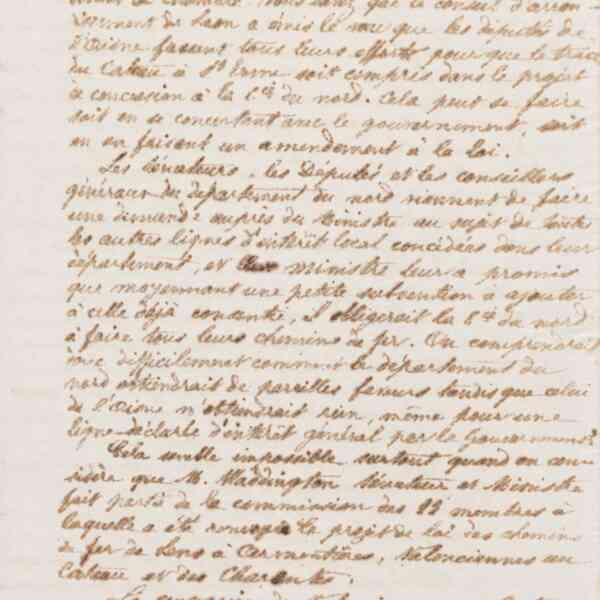 Chambre. Vous savez que le conseil d'arron-
dissement de Laon a émis le vœu que les députés de
l'Aisne fassent tous leurs efforts pour que le tracé
du Cateau à St Erme soit compris dans le projet
de concession à la Cie du nord. Cela peut se faire
soit en se concertant avec le gouvernement, soit
en en faisant un amendement à la loi.
Les sénateurs, les Députés et les conseillers
généraux du département du nord viennent de faire
une demande auprès du Ministre au sujet de toutes
les autres lignes d'intérêt local concédées dans leur
département, et Ministre leur a promis
que moyennant une petite subvention à ajouter
à celle déjà consentie, il obligerait la Cie du nord
à faire tous leurs chemins de fer. On comprendrait
difficilement comment le département du
nord obtiendrait de pareilles faveurs tandis que celui
de l'Aisne n'obtiendrait rien, même pour une
ligne déclarée d'intérêt général par le Gouvernement.
Cela semble impossible surtout quand on con-
sidère que M. Waddington Sénateur et Ministre
fait partie de la commission des 22 membres à
laquelle a été renvoyé le projet de loi des chemins
de fer de Lens à Armentières, Valenciennes au
Cateau et des Charentes.